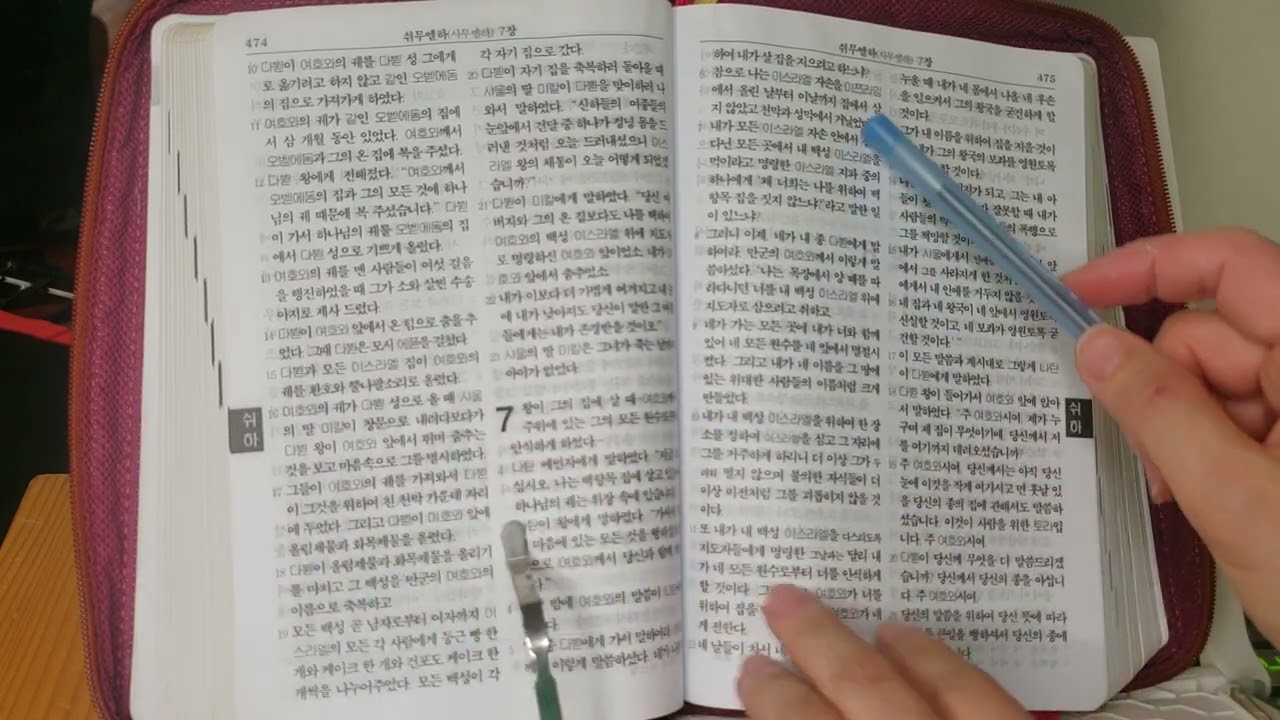 474
쉬무엘하(사무엘하) 7장
10 다뷘이 여호와의 궤를 다뷘 성 그에게
로 옮기려고 하지 않고 같인 오벧에돔
의 집으로 가져가게 하였다.
11 여호와의 궤가 같인 오벧에돔의 집에
서 삼 개월 동안 있었다. 여호와께서
오벧에돔과 그의 온 집에 복을 주셨다.
12 다뷘 왕에게 전해졌다. "여호와께서
오벧에돔의 집과 그의 모든 것에 하나
님의 궤 때문에 복 주셨습니다." 다뷘
이 가서 하나님의 궤를 오벧에돔의 집
에서 다뷘 성으로 기쁘게 올렸다.
13 여호와의 궤를 멘 사람들이 여섯 걸음
을 행진하였을 때 그가 소와 살찐 수송
아지로 제사 드렸다.
14 다뷘이 여호와 앞에서 온 힘으로 춤을 추
었다. 그때 다뷘은 모시 에폳을 걸쳤다.
15 다뷘과 모든 이스라엘 집이 여호와의
궤를 환호와 뿔나팔소리로 올렸다.
16 여호와의 궤가 다뷘 성으로 올 때 샤울
의 딸 미칼이 창문으로 내려다보다가
다뷘 왕이 여호와 앞에서 뛰며 춤추는
것을 보고 마음속으로 그를 멸시하였다.
17 그들이 여호와의 궤를 가져와서 다뷘
이 그것을 위하여 친 천막 가운데 자리
에 두었다. 그리고 다뷘이 여호와 앞에
올림제물과 화목제물을 올렸다.
18 다뷘이 올림제물과 화목제물을 올리기
를 마치고 그 백성을 만군의 여호와의
이름으로 축복하고
19 모든 백성 곧 남자로부터 여자까지 이
스라엘의 모든 각 사람에게 둥근 빵 한
개와 케이크 한 개와 건포도 케이크 한
개씩을 나누어주었다. 모든 백성이 각
각 자기 집으로 갔다.
20 다뷘이 자기 집을 축복하러 돌아올 때
샤울의 딸 미칼이 다뷘을 맞이하러 나
와서 말하였다. "신하들의 여종들의
눈앞에서 건달 중 하나가 정녕 몸을 드
러낸 것처럼 오늘 드러내셨으니 이스
라엘 왕의 체통이 오늘 어떻게 되었겠
습니까?"
21 다뷘이 미칼에게 말하였다. "당신 아
버지와 그의 온 집보다도 나를 택하
여호와의 백성 이스라엘 위에 지도자
로 명령하신 여호와 앞이었소. 내가
호와 앞에서 춤추었소.
22 내가 이보다 더 가볍게 여겨지고 내
에 내가 낮아지도 당신이 말한 그 여
들에게는 내가 존경받을 것이오."
23 샤울의 딸 미칼은 그녀가 죽는 날까
아이가 없었다.
7 왕이 그의 집에 살 때 여호
주위에 있는 그의 모든 원수로부
안식하게 하였다.
2 나탄 예언자에게 말하였다. "지금
십시오. 나는 백향목 집에 살고 있
하나님의 궤는 휘장 속에 있습니다
탄이 왕에게 말하였다. "가서
마음에 있는 모든 것을 행하
으로 여호와께서 당신과 함께
다."
밤에 여호와의 말씀이 나탄
다.
다뷘에게 가서 말하여라
이렇게 말씀하셨다. 네가 나
쉬무엘하(사무엘하) 7장
475
하여 내가 살 집을 지으려고 하느냐?
6 참으로 나는 이스라엘 자손을 이쯔라임
에서 올린 날부터 이날까지 집에서 살
지 않았고 천막과 성막에서 거닐었
내가 모든 이스라엘 자손 안에서
다닌 모든 곳에서 내 백성 이스라엘을
먹이라고 명령한 이스라엘 지파 중의
하나에게 '왜 너희는 나를 위하여 백
향목 집을 짓지 않느냐?'라고 말한 일
이 있느냐?
그러니 이제, 네가 내 종 다뷘에게 말
하여라. 만군의 여호와께서 이렇게 말
씀하셨다. '나는 목장에서 양 떼를 따
라다니던 너를 내 백성 이스라엘 위에
지도자로 삼으려고 취하고
9 네가 가는 모든 곳에 내가 너와 함께
있어 네 모든 원수를 네 앞에서 멸절시
켰다. 그리고 내가 네 이름을 그 땅에
있는 위대한 사람들의 이름처럼 크게
만들었다.
내가 내 백성 이스라엘을 위하여 한 장
소를 정하여 이스라엘을 심고 그 자리에
그를 거주하게 하리니 더 이상 그가 두
려워 떨지 않으며 불의한 자식들이 더
이상 이전처럼 그를 괴롭히지 않을 것
이다.
11 또 내가 내 백성 이스라엘을 다스리도록
지도자들에게 명령한 그날과는 달리 내
가 네 모든 원수로부터 너를 안식하게
할 것이다. 여호와가 너를
위하여 집을 여호와가 네
게 전한다.
네 날들이 차서 네
누울 때 내가 네 몸에서 나올 네 후손
을 일으켜서 그의 왕국을 굳건하게 할
것이다.
그가 내 이름을 위하여 집을 지을 것이
내가 그의 왕국의 보좌를 영원토록
할 것이다.
지가 되고, 그는 내 아
들이 잘못할 때 내가
사람들의 막 들의 폭행으로
그를 책망할 것이
내가 샤울에게서
에서 그를 사라지게 한 것처
에게서 내 인애를 거두지 않을 것
16 네 집과 네 왕국이 네 앞에서 영원토
신실할 것이고, 네 보좌가 영원토록 굳
건할 것이다.'"
17 이 모든 말씀과 계시대로 그렇게 나탄
이 다뷘에게 말하였다.
18 다뷘 왕이 들어가서 여호와 앞에 앉아
서 말하였다. "주 여호와시여, 제가 누
구며 제 집이 무엇이기에, 당신께서 저
를 여기까지 데려오셨습니까?
주 여호와시여, 당신께서는 아직 당신
눈에 이것을 작게 여기시고 먼 훗날 있
을 당신의 종의 집에 관해서도 말씀하
셨습니다. 이것이 사람을 위한 토라입
니다. 주 여호와시여.
20 다뷘이 당신께 무엇을 더 말씀드리겠
습니까? 당신께서 당신의 종을 아십니
다. 주 여호와시여.
당신의 말씀을 위하여 당신 뜻에 따라
큰일을 행하셔서 당신의 종에
쉬
하
쉬
하